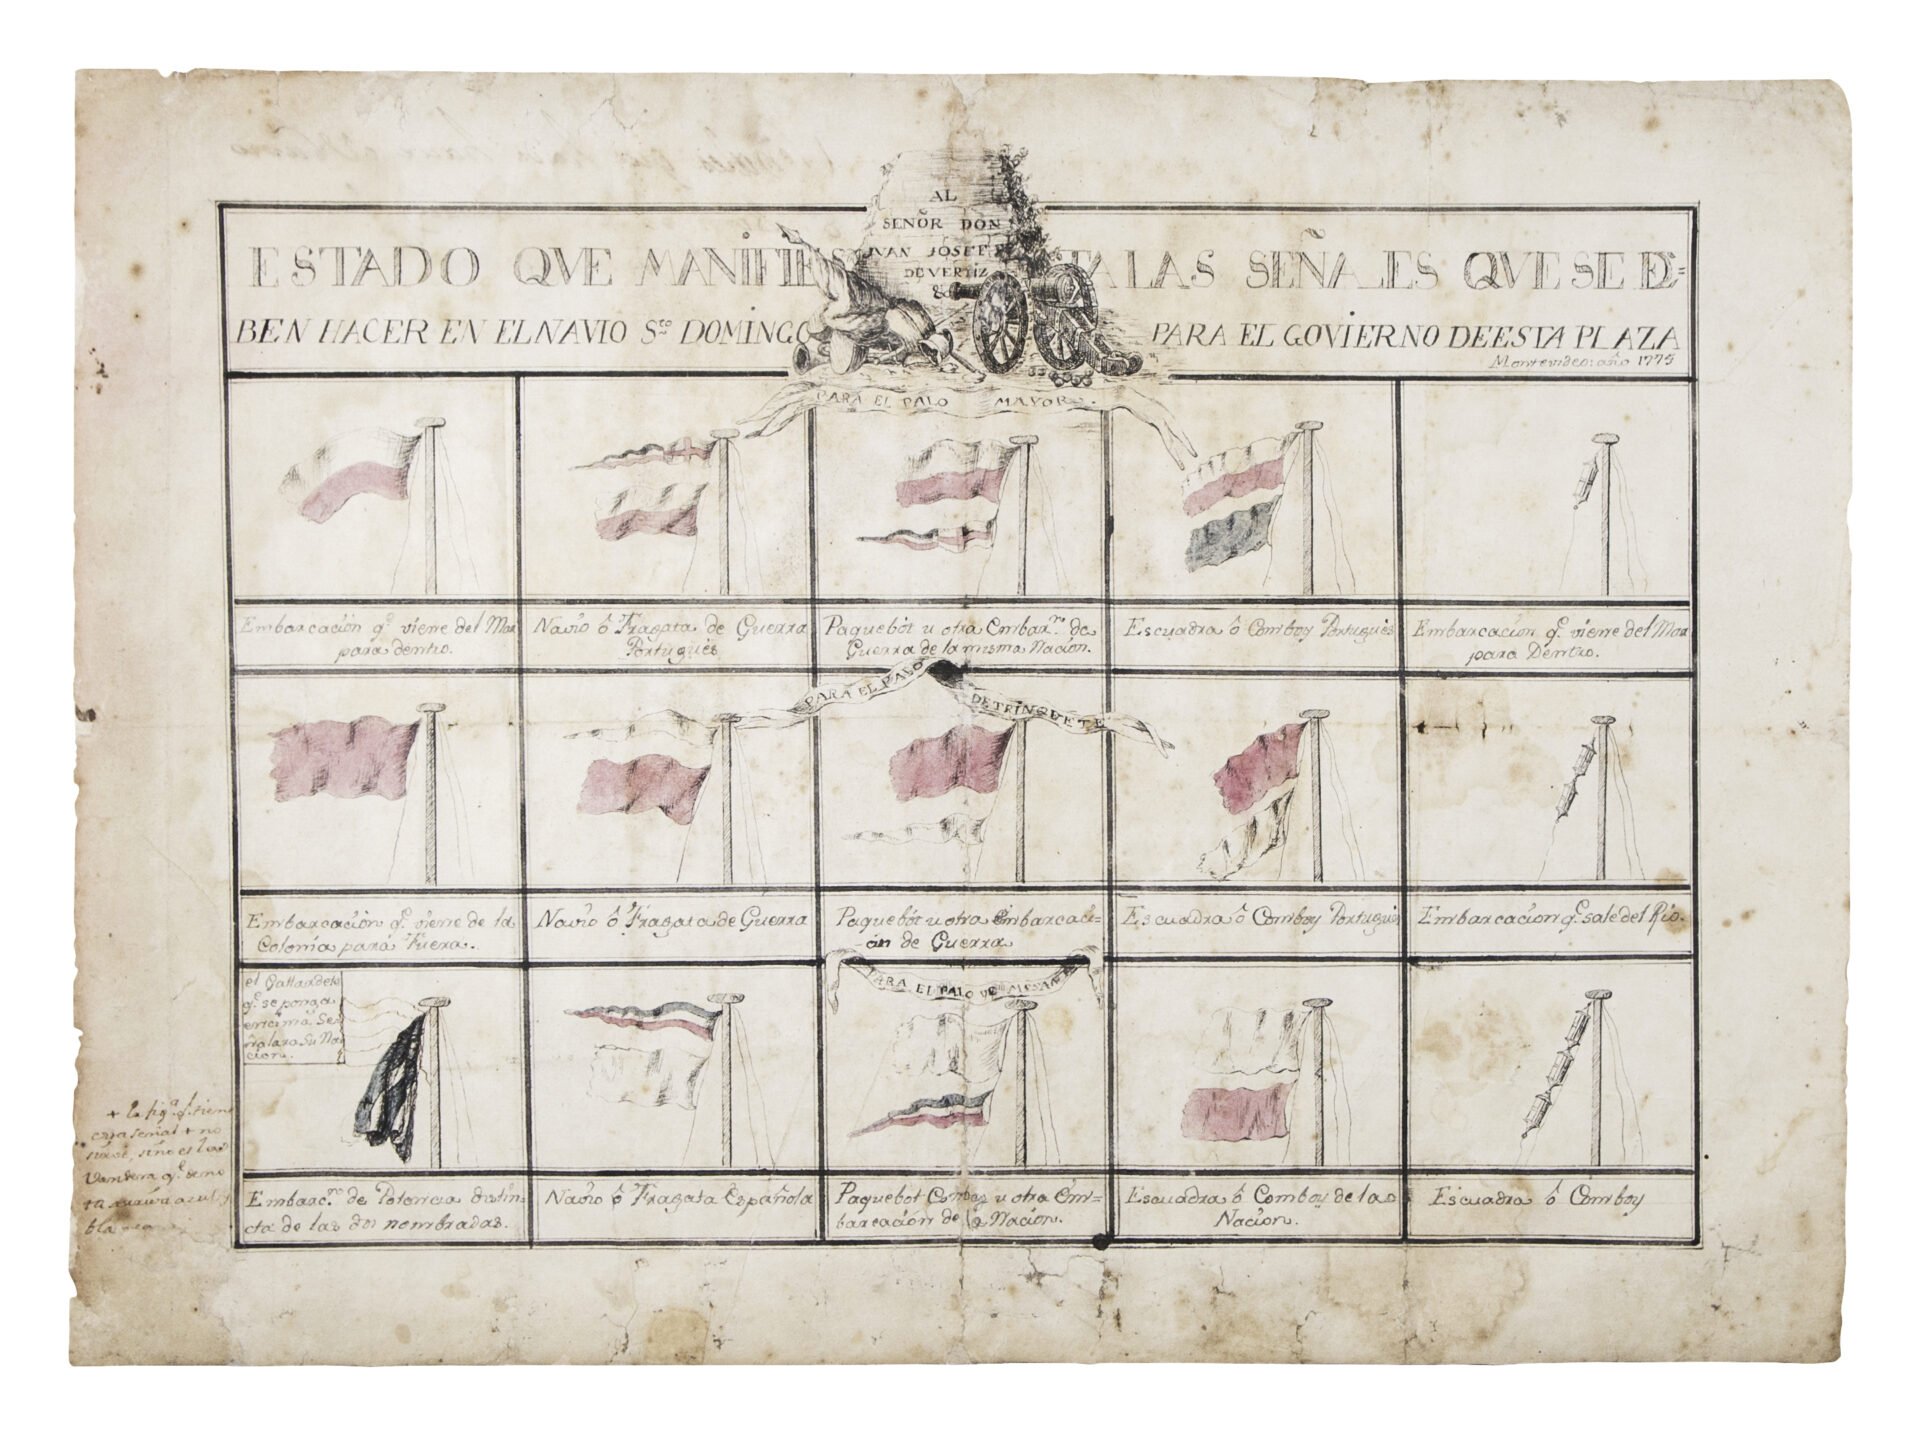 AL
SEÑOR DON
JVAN JÓSEF
DE VERTIZ
&c
ESTADO QVE MANIFIESTA LAS SEÑALES QVE SE DE=
BEN HACER EN EL NAVIO Sto DOMINGO PARA EL GOVIERNO DE ESTA PLAZA
Montevideo: año 1775
PARA EL PALO MAYOR.
Embarcación q.e viene del Mar
para dentro.
Navío ô Fragata de Guerra
Portugués
Paquebót u otra Embar.on de
Guerra de la misma Nación.
Escuadra ô Comboy Portugués
Embarcación q.e viene del Mar
para Dentro.
PARA EL PALO DE TRINQUETE
Embarcación q.e viene de la
Colonia para Fuera.
Navío ô Fragata de Guerra
Paquebót u otra embarcaci=
ón de Guerra
Escuadra ô Comboy Portugués
Embarcación q.e sale del Rio.
PARA EL PALO DE MESANA
el Gallardete
q.e se ponga
encima Se=
ñalara Su Na
cion.
+ la fig.a q.e tiene
esta señal + no
sirve, sino es la
vandera q.e demo
azul y
blanca
Embarc.on de Potencia distin=
cta de las dos nombradas.
Navío ô Fragata Española
Paquebot u otra Em=
barcación de la Nación.
Escuadra ô Comboy de la
Nación.
Escuadra ô Comboy